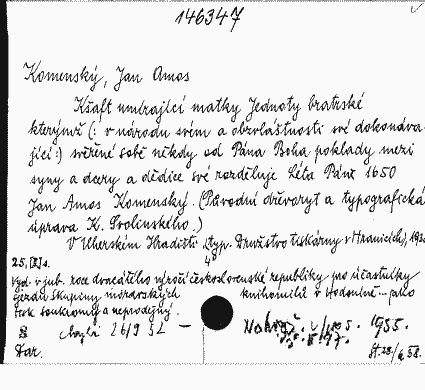 146347
Komenský, Jan Amos
Kšaft umírající matky Jednoty bratrské
kterýmž (: v národu svém a obzvláštnosti své dokonáva-
jící :) svěřené sobě někdy od Pána Boha poklady mezi
syny a dcery a dědice své rozděluje Léta Páně 1650
Jan Amos Komenský. (Původní dřevoryt a typografická
úprava K. Svolinského.)
V Uherském Hradišti, (typ. Družstvo tiskárny v Hranicích), 193
4°
25, [I] s.
Vyd. v jub. roce dvacátého výročí československé republiky pro účastníky
sjezdu skupiny moravských knihomilů v Hodoníně... jako
tisk soukromý a neprodejný.
26/9 52 —
1955.
Dar.